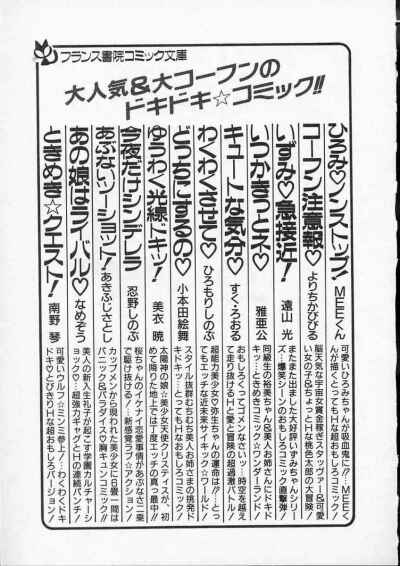 フランス書院コミック文庫
大人気&大コーフンの
ドキドキ☆コミック!!
ひろみ♡ノンストップ! MEEくん
可愛いひろみちゃんが吸血鬼に!?…MEEく
んが描くとってもHな超おもしろコミック!
コーフン注意報♡ よりちかぴぴる
脳天気な宇宙女賞金稼ぎスタッグァー&可愛
い女の子&ちょっとHな桃色太郎の大冒険!
いずみ♡急接近! 遠山 光
またまた出ました大好評いずみちゃんシリー
ズ!爆笑シーンのおもしろコミック直撃弾!
いつかきっとネ♡ 雅亜公
同級生の裕美ちゃん&美人お姉さんにドキド
キッ!…ときめきコミック☆ワンダーランド!
キュートな気分♡ すぐ・ろおる
おもしろくってゴメンなさいっ…時空を越え
てまり抜けるH愛と冒険の超過激バトル!
わくわくさせて♡ ひろもりしのぶ
超能力美少女♡弥生ちゃんの運命は!?…とっ
てもエッチな近未来サイキック☆ワールド!
どっちにするの♡ 小本田絵舞
スタイル抜群むちむち美人お姉さまの挑発ド
キドキッ…とってもHなおもしろコミック!
ゆうわく光線ドキッ! 美衣 暁
太陽神の美少女天使クリスティスが、初
めて降りた地上では丁度エッチの真っ最中!!
今夜だけシンデレラ 忍野しのぶ
桜ちゃんの恋愛事情があぶなさ二乗
で駆け抜ける!…新感覚ラブ☆アクション!
あぶないシーショット! あきふじさとし
カップメンから現われた美少女に6畳一間は
パニック&パラダイス♡胸キュンコミック!!
あの娘はライバル♡ なめぞう
美人の新入生礼子が起こす学園カルチャーシ
ョック♡…超強力ギャグとHの連続パンチ!
ときめき☆クエスト! 南野 琴
可愛いウルフ☆ミンミ参上!…わくわくドキ
ドキ♡とびきりHな超おもしろバージョン!